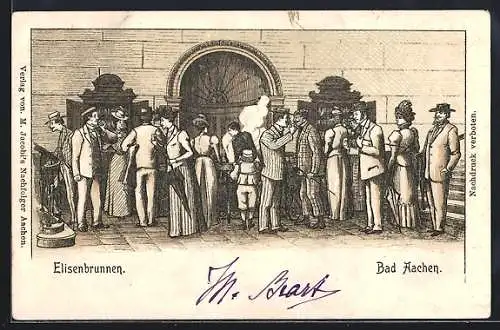 Verlag von. M. Jacobi's Nachfolger Aachen.
Nachdruck verboten.
Elisenbrunnen.
Bad Aachen.
M.